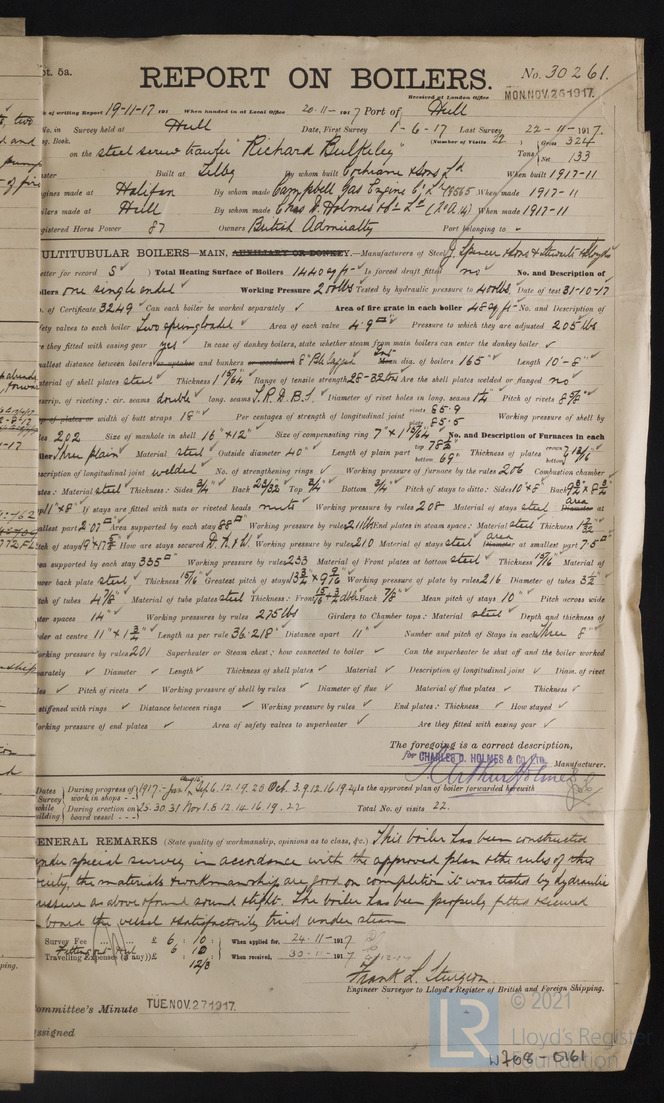 pt. 5a.
REPORT ON BOILERS.
No. 30261.
Received at London Office MON. NOV. 26 1917.
of writing Report 19-11-17 191 When handed in at Local Office 20-11-1917 Port of Hull
No. in Survey held at Hull Date, First Survey 1-6-17 Last Survey 22-11-1917.
g. Book. (Number of Visits 22)
on the steel screw trawler "Richard Bulkeley" Tons Gross 324 Net 133
ster Built at Selby By whom built Cochrane & Sons Ld When built 1917-11
gines made at Halifax By whom made Campbell Gas Engine Co Ld (8565 When made 1917-11
ilers made at Hull By whom made Chas D. Holmes & Co Ld When made 1917-11
gistered Horse Power 87 Owners British Admiralty Port belonging to
ULTITUBULAR BOILERS—MAIN, AUXILIARY OR DONKEY.—Manufacturers of Steel J. Spencer & Sons & Stewarts & Lloyds
etter for record S ) Total Heating Surface of Boilers 1440 sq ft Is forced draft fitted no No. and Description of
ilers one single ended Working Pressure 200 lbs Tested by hydraulic pressure to 400 lbs. Date of test 31-10-17
o. of Certificate 3249 Can each boiler be worked separately Area of fire grate in each boiler 48 sq ft No. and Description of
fety valves to each boiler Two spring loaded Area of each valve 4.9 Pressure to which they are adjusted 205 lbs
re they fitted with easing gear yes In case of donkey boilers, state whether steam from main boilers can enter the donkey boiler
allest distance between boilers or uptakes and bunkers or woodwork 8" dia. of boilers 165" Length 10'-8"
aterial of shell plates steel Thickness 1 15/64 Range of tensile strength 28-32 tons Are the shell plates welded or flanged no
escrip. of riveting: cir. seams double long. seams T.R.D.B.S. Diameter of rivet holes in long. seams 1 1/4 Pitch of rivets
p of plates or width of butt straps 18" Per centages of strength of longitudinal joint rivets 85.9 plate 85.5 Working pressure of shell by
les 202 Size of manhole in shell 16" x 12" Size of compensating ring 7" x 1 15/64 No. and Description of Furnaces in each
iler Three plain Material steel Outside diameter 40" Length of plain part top 78 1/2 bottom 69" Thickness of plates crown bottom
escription of longitudinal joint welded No. of strengthening rings Working pressure of furnace by the rules 206 Combustion chamber
ates: Material steel Thickness: Sides 3/4 Back 23/32 Top 3/4 Bottom 3/4 Pitch of stays to ditto: Sides 10" x 8" Back
11" x 8" If stays are fitted with nuts or riveted heads nuts Working pressure by rules 208 Material of stays steel area Diameter at
allest part 2.07 Area supported by each stay 88 Working pressure by rules 211 lbs End plates in steam space: Material steel Thickness
itch of stays How are stays secured D. N. & W. Working pressure by rules 210 Material of stays steel area Diameter at smallest part 7.5
ea supported by each stay 335 Working pressure by rules 233 Material of Front plates at bottom steel Thickness 15/16 Material of
ower back plate steel Thickness 15/16 Greatest pitch of stays Working pressure of plate by rules 216 Diameter of tubes 3 1/2
itch of tubes 4 7/8 Material of tube plates steel Thickness: Front Back 7/8" Mean pitch of stays 10" Pitch across wide
ter spaces 14" Working pressures by rules 275 lbs Girders to Chamber tops: Material steel Depth and thickness of
rder at centre 11" x 1 3/4 Length as per rule 36.218" Distance apart 11" Number and pitch of Stays in each Three 8"
orking pressure by rules 201 Superheater or Steam chest: how connected to boiler Can the superheater be shut off and the boiler worked
parately Diameter Length Thickness of shell plates Material Description of longitudinal joint Diam. of rivet
les Pitch of rivets Working pressure of shell by rules Diameter of flue Material of flue plates Thickness
stiffened with rings Distance between rings Working pressure by rules End plates: Thickness How stayed
orking pressure of end plates Area of safety valves to superheater Are they fitted with easing gear
The foregoing is a correct description,
for CHARLES D. HOLMES & CO. LTD. Manufacturer.
Dates of Survey while building During progress of work in shops - - 1917:- Jun 1 Aug 15 Sep 6. 12. 19. 28 Oct. 3. 9. 12. 16. 19. 24 Is the approved plan of boiler forwarded herewith
During erection on board vessel - - - 25. 30. 31 Nov 1. 5. 12. 14. 16. 19. 22 Total No. of visits 22.
ENERAL REMARKS (State quality of workmanship, opinions as to class, &c.) This boiler has been constructed
under special survey in accordance with the approved plan & the rules of this
ciety, the materials & workmanship are good on completion it was tested by hydraulic
ressure as above & found sound & tight. The boiler has been properly fitted & secured
board the vessel & satisfactorily tried under steam
Survey Fee ... £ 6 : 10 : When applied for, 24-11-1917
Fitting out Hull 6 10
Travelling Expenses (if any) £ 12/3 When received, 30-11-1917
Frank L. Sturgeon.
Engineer Surveyor to Lloyd's Register of British and Foreign Shipping.
ommittee's Minute TUE. NOV. 27 1917.
ssigned
W708-0161
LR © 2021
Lloyd's Register
Foundation